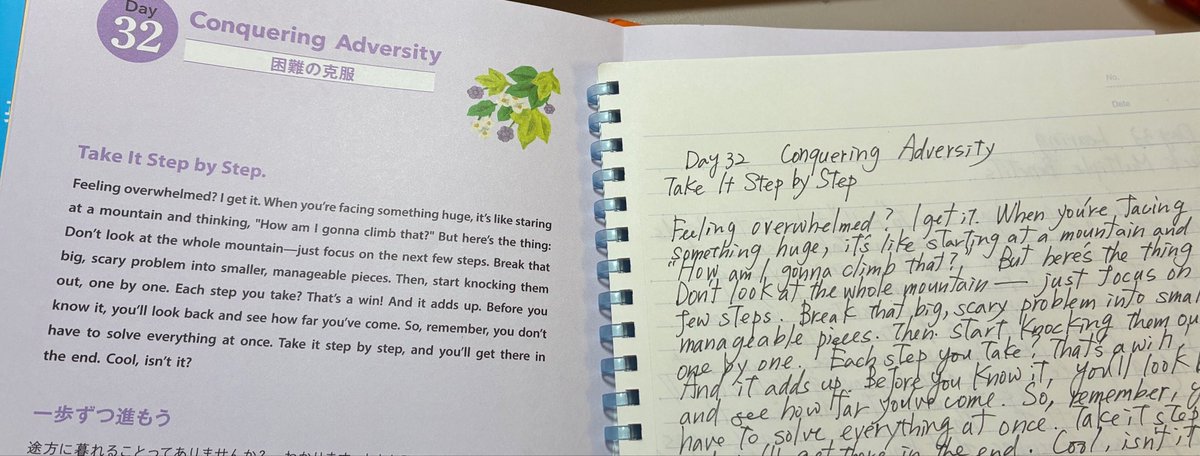 Day
32
Conquering Adversity
困難の克服
Take It Step by Step.
Feeling overwhelmed? I get it. When you're facing something huge, it's like staring
at a mountain and thinking, "How am I gonna climb that?" But here's the thing:
Don't look at the whole mountain—just focus on the next few steps. Break that
big, scary problem into smaller, manageable pieces. Then, start knocking them
out, one by one. Each step you take? That's a win! And it adds up. Before you
know it, you'll look back and see how far you've come. So, remember, you don't
have to solve everything at once. Take it step by step, and you'll get there in
the end. Cool, isn't it?
一歩ずつ進もう
途方に暮れることってありませんか?
No.
Date
Day 32 Conquering Adversity
Take It Step by Step
Feeling overwhelmed? I get it. When you're facing
something huge, it's like starting at a mountain and
"How am I gonna climb that?" But here's the thing
Don't look at the whole mountain — just focus on
few steps. Break that big, scary problem into smal
manageable pieces. Then. start knocking them ou
one by one. Each step you take? That's a win,
And it adds up. Before you know it, you'll look b
and see how far you've come. So, remember, y
have to solve everything at once. Take it step
there in the end. Cool, isn't it